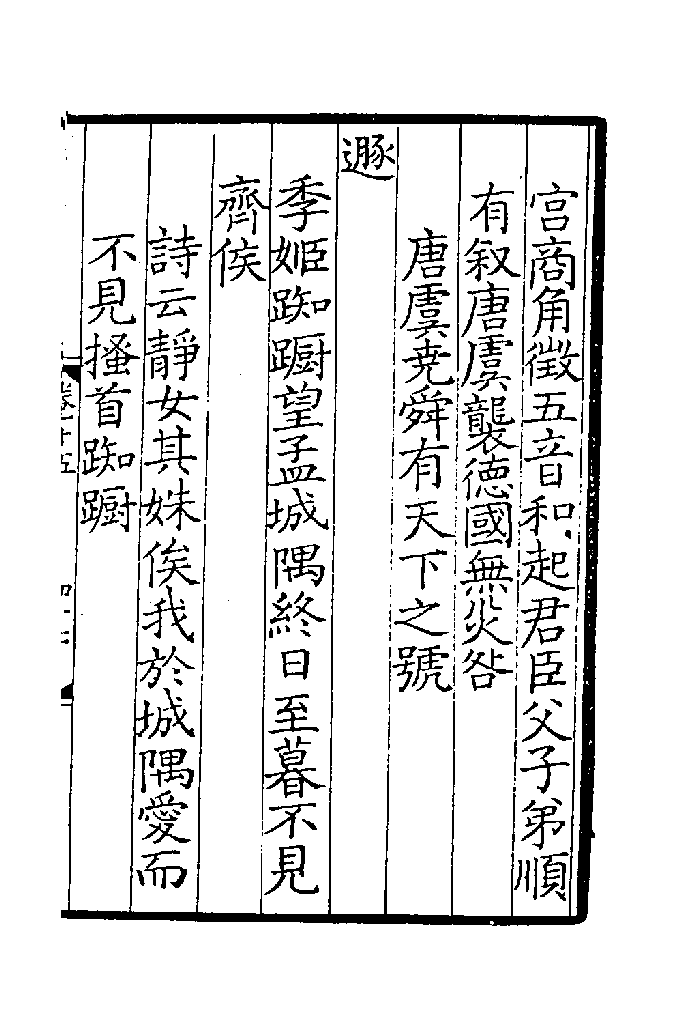 宮商角徵五音和起君臣父子弟順
有叙唐虞襲德國無災咎
唐虞尭舜有天下之號
遯
季姬踟躕望孟城隅終日至暮不見
齊侯
詩云靜女其姝俟我於城隅愛而
不見搔首踟躕
卷十五